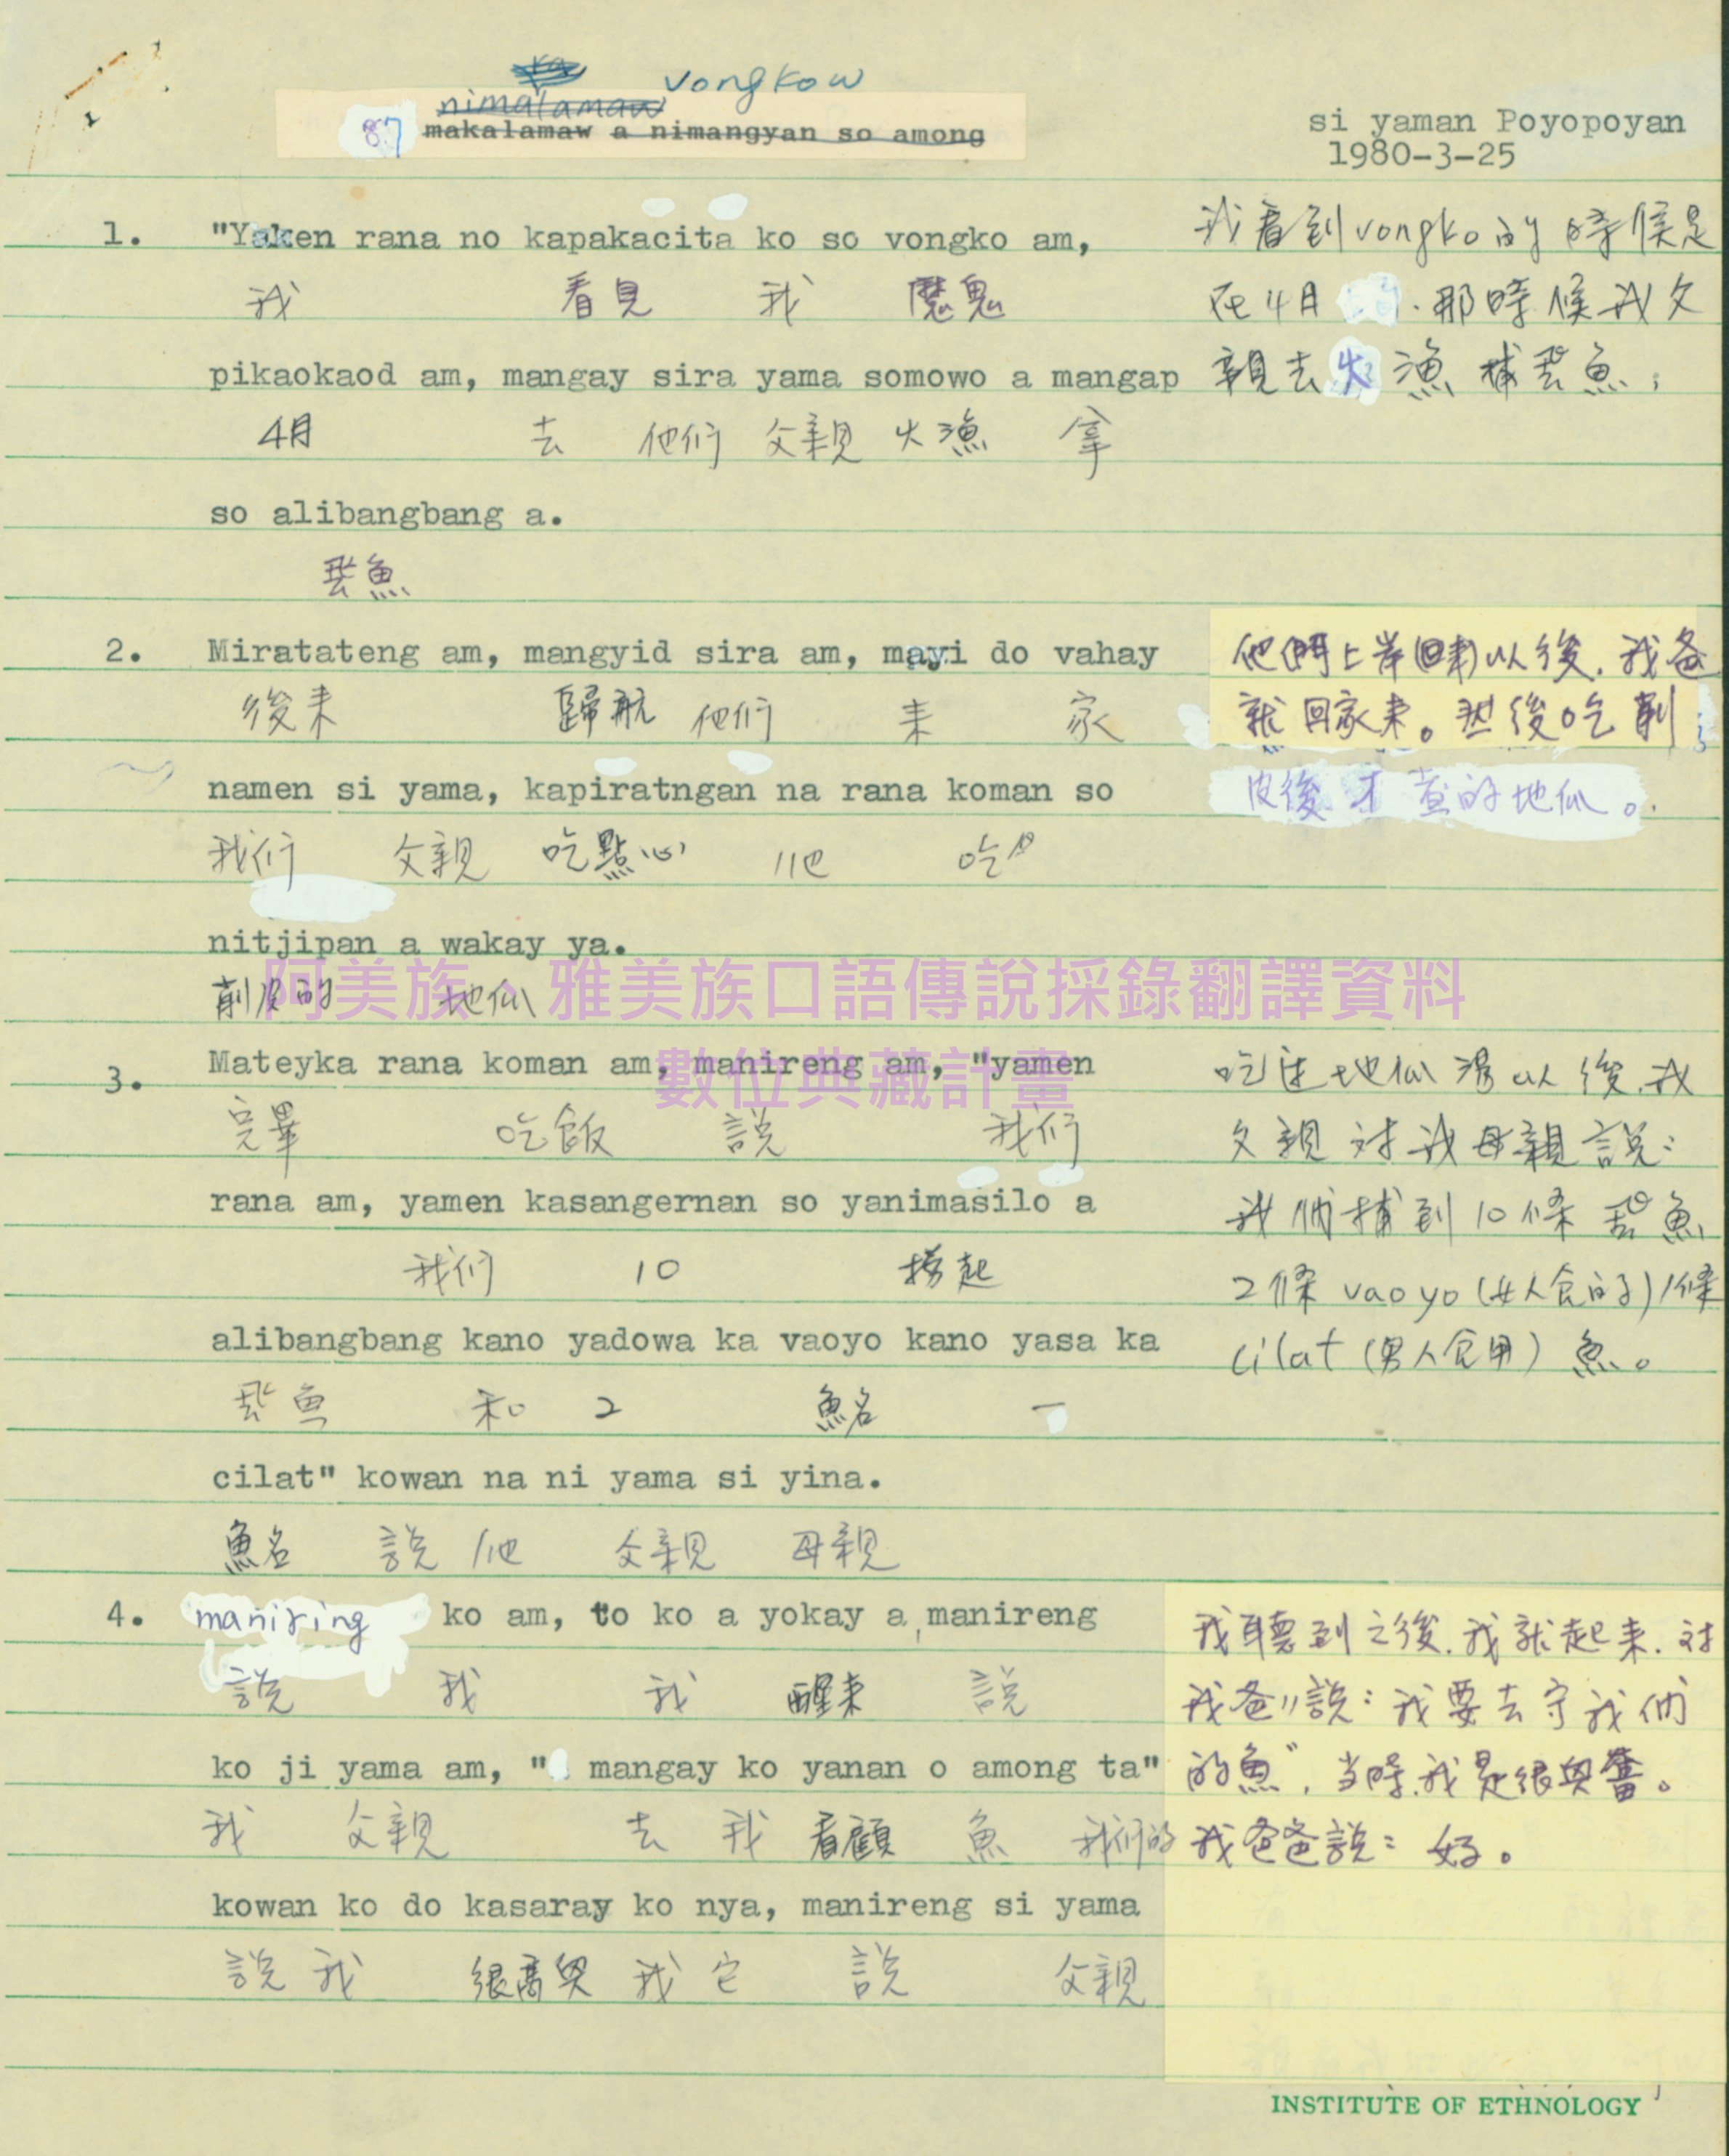 vongkow
nimalamaw
87 makalamaw a nimangyan so among
si yaman Poyopoyan
1980-3-25
1. "Yaken rana no kapakacita ko so vongko am,
我 看見 我 魔鬼
pikaokaod am, mangay sira yama somowo a mangap
4月 去 他们 父親 火漁 拿
so alibangbang a.
飛魚
我看到vongko的時候是
在4月.那時候我父
親去火漁捕飛魚,
2. Miratateng am, mangyid sira am, mayi do vahay
後来 歸航 他们 来 家
namen si yama, kapiratngan na rana koman so
我们 父親 吃點心 他 吃
nitjipan a wakay ya.
削皮的 地瓜
他們上岸(回来)以後.我爸
就回家来。然後吃削
皮後才煮的地瓜。
阿美族、雅美族口語傳說採錄翻譯資料
數位典藏計畫
3. Mateyka rana koman am, manireng am, "yamen
完畢 吃飯 說 我们
rana am, yamen kasangernan so yanimasilo a
我们 10 撈起
alibangbang kano yadowa ka vaoyo kano yasa ka
飛魚 和 2 魚名 一
cilat" kowan na ni yama si yina.
魚名 說 他 父親 母親
吃过地瓜湯以後.我
父親对我母親說:
我們捕到10條飛魚
2條vaoyo(女人食的)1條
cilat(男人食用)魚。
4. maniring ko am, to ko a yokay a manireng
說 我 我 醒来 說
ko ji yama am, " mangay ko yanan o among ta"
我 父親 去 我 看顧 魚 我们的
kowan ko do kasaray ko nya, manireng si yama
說 我 很高興 我 它 說 父親
我聽到之後.我就起来.对
我爸〃說:我要去守我們
的魚",当時.我是很興奮。
我爸爸說:好。
INSTITUTE OF ETHNOLOGY